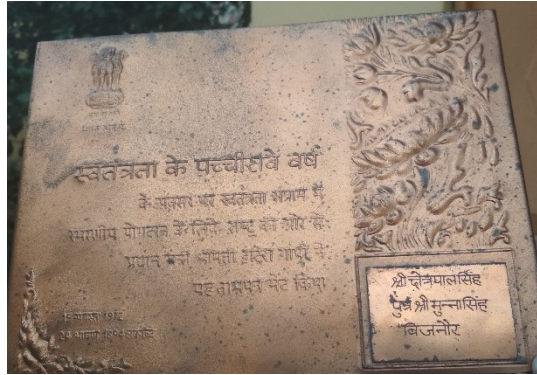 स्वतंत्रता के पच्चीसवें वर्ष
के अवसर पर स्वतंत्रता संग्राम में
स्मरणीय योगदान के लिये राष्ट्र की ओर से
प्रधान मंत्री श्रीमती इंदिरा गांधी ने
यह ताम्रपत्र भेंट किया
15 अगस्त 1972
24 श्रावण 1894
श्री क्षेत्रपालसिंह
पुत्र श्री मुन्नासिंह
बिजनौर